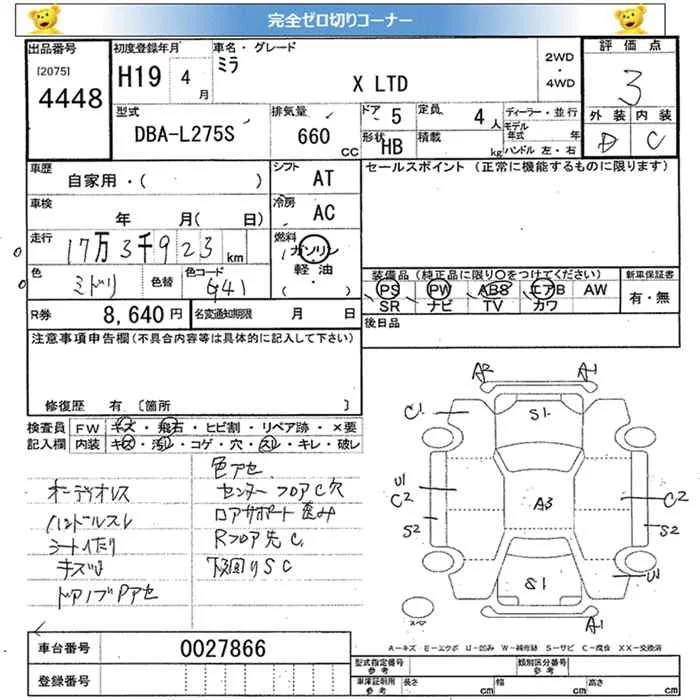 完全ゼロ切りコーナー
出品番号
[2075]
4448
初度登録年月
H19 4月
車名・グレード
ミラ
X LTD
2WD
・
4WD
評価点
3
外装 内装
D C
型式
DBA-L275S
排気量
660 CC
ドア 5
定員 4人
形状 HB
積載 kg
ディーラー・並行
モデル年式 年
ハンドル 左・右
車歴
自家用・( )
シフト AT
セールスポイント (正常に機能するものに限ります)
車検
年 月( 日)
冷房 AC
走行
17万3千923 km
燃料
ガソリン
軽油
( ・ )
色
ミドリ
色替
色コード
G41
装備品 (純正品に限り○をつけてください)
PS PW ABS エアB AW
SR ナビ TV カワ
新車保証書
有・無
R券 8,640円
名変通知期限 月 日
後日品
注意事項申告欄(不具合内容等は具体的に記入して下さい)
修復歴 有 〔箇所 〕
検査員記入欄
FW キズ・飛石・ヒビ割・リペア跡・×要
内装 キズ・汚レ・コゲ・穴・スレ・キレ・破レ
色アセ
オーディオレス
センターフロアC穴
ハンドルスレ
ロアサポート歪み
シートイタリ
Rフロア先C
キズ
下回りSC
ドアノブPアセ
A2 A1
C1 S1
U1
C2 A3 C2
S2 S2
S1 U1
A1
スペア
A-キズ E-エクボ U-凹み W-補修跡 S-サビ C-腐食 XX-交換済
車台番号 0027866
登録番号
型式指定番号
参考
類別区分番号
参考
車庫証明用
参考
長さ cm 幅 cm 高さ cm